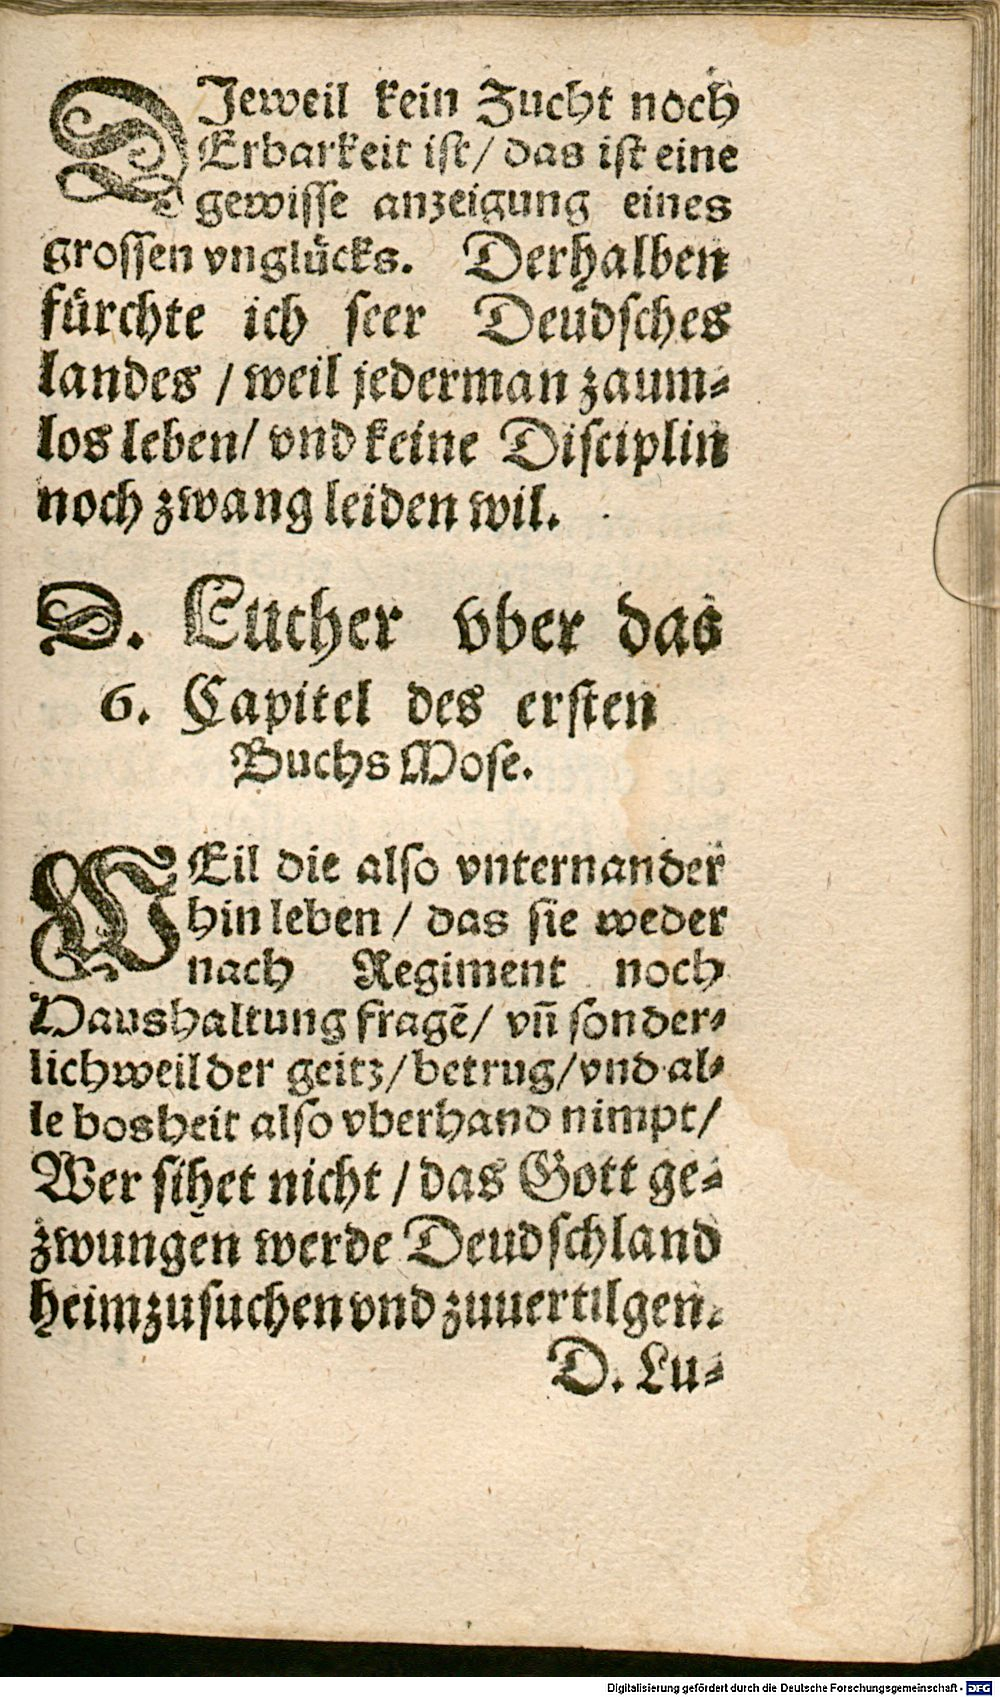 DJeweil kein Zucht noch
Erbarkeit ist/ das ist eine
gewisse anzeigung eines
grossen vnglücks. Derhalben
fürchte ich seer Deudsches
landes / weil jederman zaum⸗
los leben/ vnd keine Disciplin
noch zwang leiden wil.
D. Luther vber das
6. Capitel des ersten
Buchs Mose.
WEil die also vnternander
hin leben / das sie weder
nach Regiment noch
Haushaltung fragẽ/ vñ sonder⸗
lich weil der geitz/ betrug/ vnd al⸗
le bosheit also vberhand nimpt/
Wer sihet nicht / das Gott ge⸗
zwungen werde Deudschland
heimzusuchen vnd zuuertilgen.
D. Lu⸗
Digitalisierung gefördert durch die Deutsche Forschungsgemeinschaft - DFG